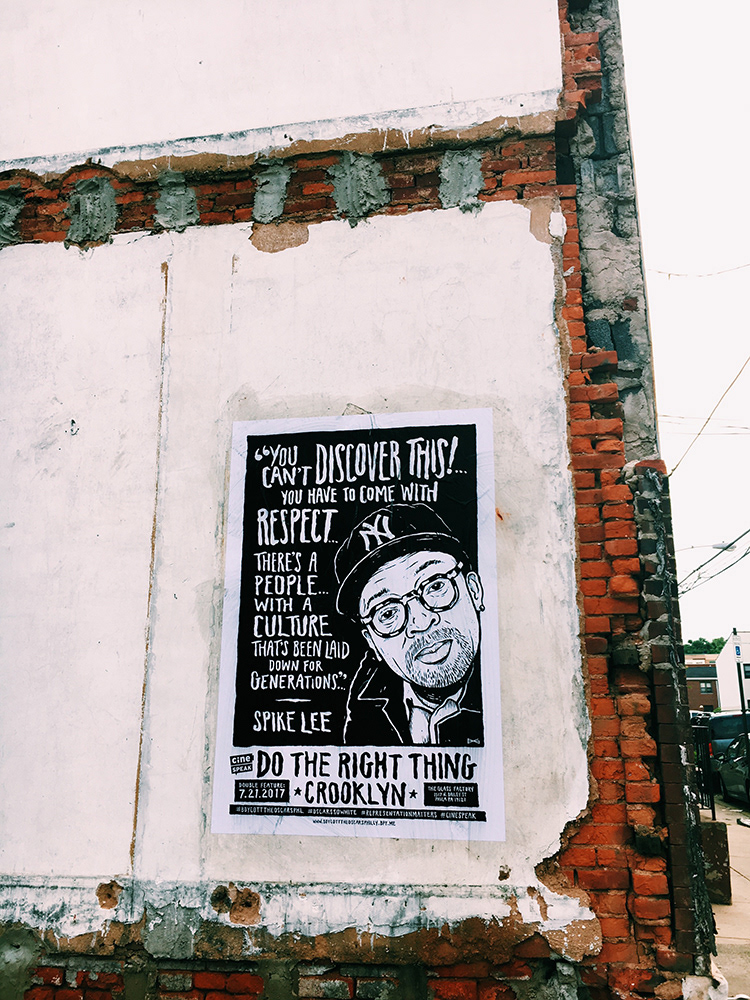 “YOU
CAN'T DISCOVER THIS!...
YOU HAVE TO COME WITH
RESPECT...
THERE'S A
PEOPLE...
WITH A
CULTURE
THAT'S BEEN LAID
DOWN FOR
GENERATIONS...”
SPIKE LEE
NY
cine
SPEAK
DO THE RIGHT THING
DOUBLE FEATURE:
7.21.2017
★CROOKLYN★
THE GLASS FACTORY
PHILA PA 19121
#BOYCOTTTHEOSCARSPHL #OSCARSSOWHITE #REPRESENTATIONMATTERS #CINESPEAK
WWW.BOYCOTTTHEOSCARSPHILLY.BPT.ME